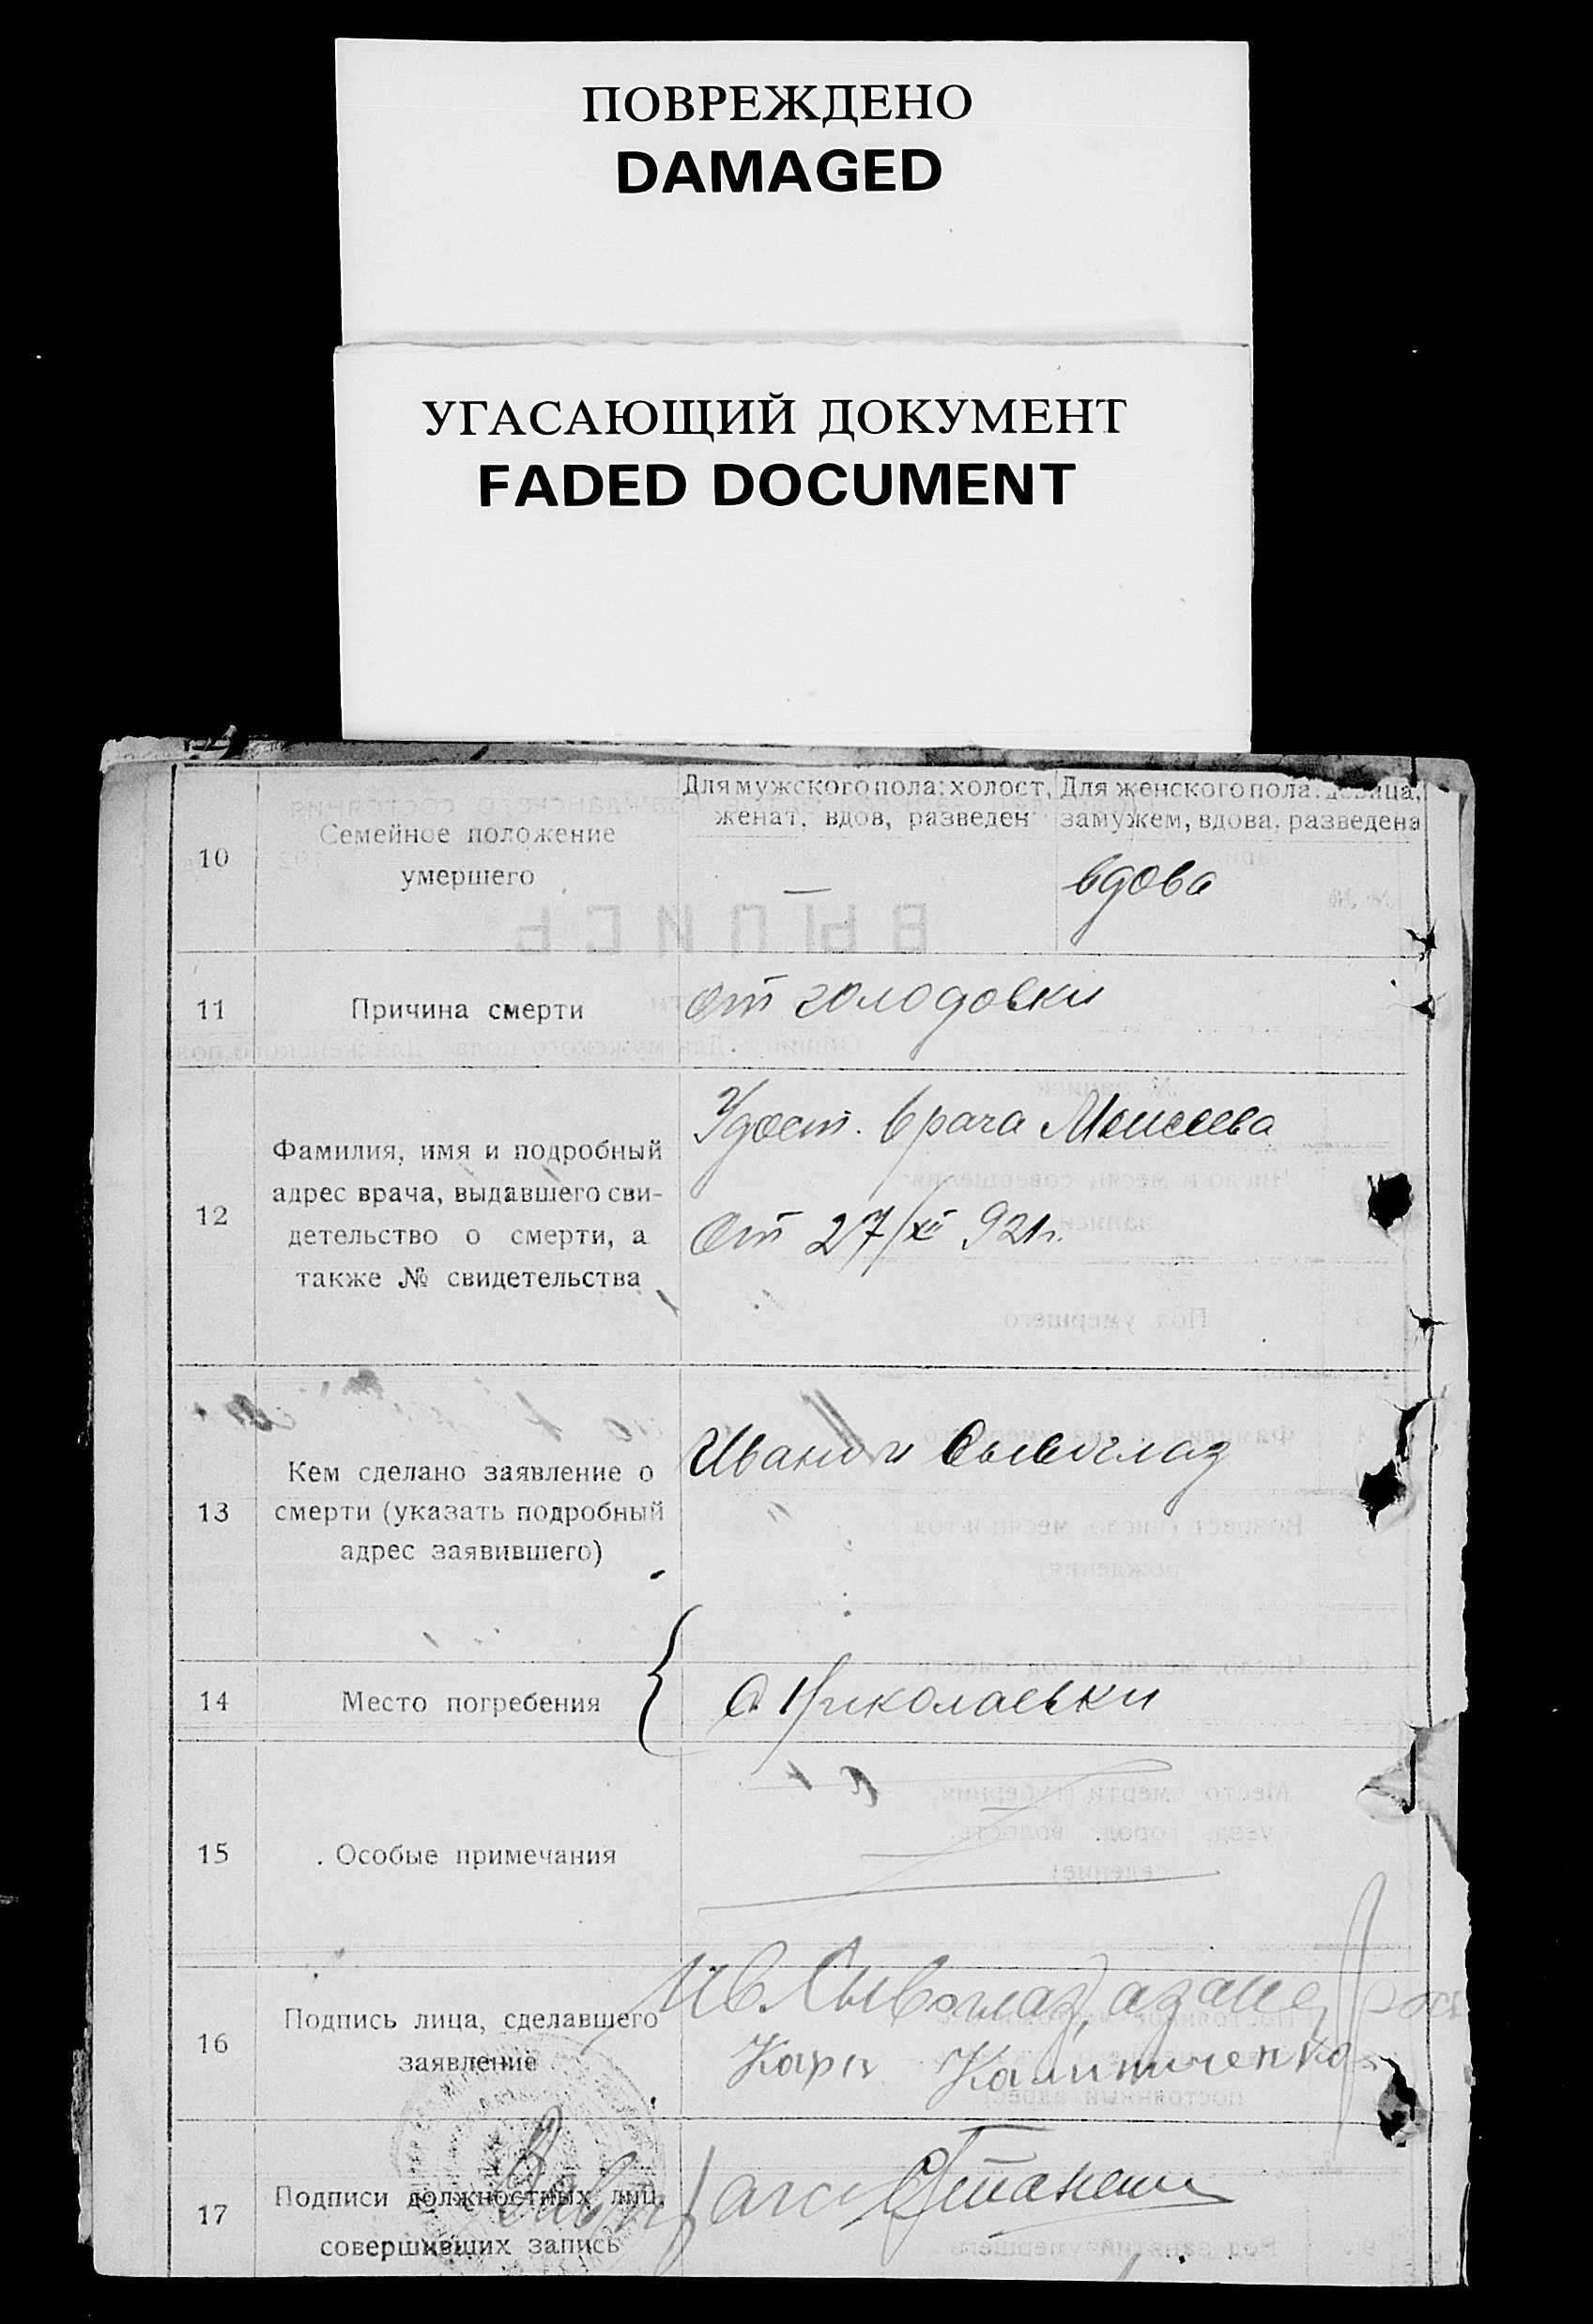 ПОВРЕЖДЕНО
DAMAGED
УГАСАЮЩИЙ ДОКУМЕНТ
FADED DOCUMENT
10
Семейное положение
умершего
Для мужского пола: холост,
женат, вдов, разведен
—
Для женского пола: девица,
замужем, вдова, разведена
вдова
11
Причина смерти
от голодовки
12
Фамилия, имя и подробный
адрес врача, выдавшего сви-
детельство о смерти, а
также № свидетельства
Удост. врача Моисеева
От 27/XII 921г.
13
Кем сделано заявление о
смерти (указать подробный
адрес заявившего)
Иваном Сывоглаз
14
Место погребения
С. Николаевки
15
Особые примечания
16
Подпись лица, сделавшего
заявление
Ив Сывоглаз, а за не
Карп Калиниченко
17
Подписи должностных лиц,
совершивших запись